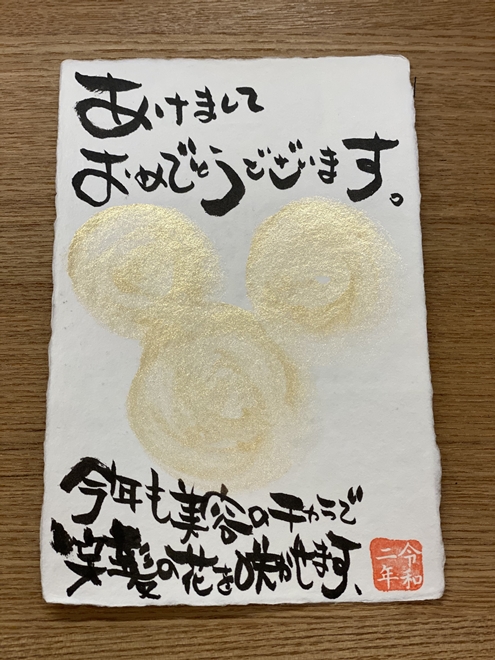 あけまして
おめでとうございます。
今年も美容のチカラで
笑顔の花を咲かせます、
令和
二年